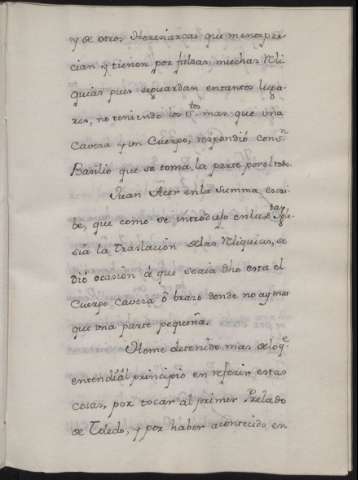 y de otros Heresiarcas que menospre-
cian y tienen por falsas muchas Reli-
quias pues se guardan en tantos luga-
res, no teniendo los S.tos mas que una
Cavera y un Cuerpo, respondió con S.n
Basilio que se toma la parte por el todo.
Juan Acer en la Summa escri-
be, que como se introdujo en las Igle-
sia la Traslación de las Reliquias, se
dió ocasión á que se aia dho esta el
Cuerpo, Cavera ó brazo donde no ay mas
que una parte pequeña.
Heme detenido mas de lo q.e
entendí al principio en referir estas
cosas, por tocar al primer Prelado
de Toledo, y por haber acontecido en